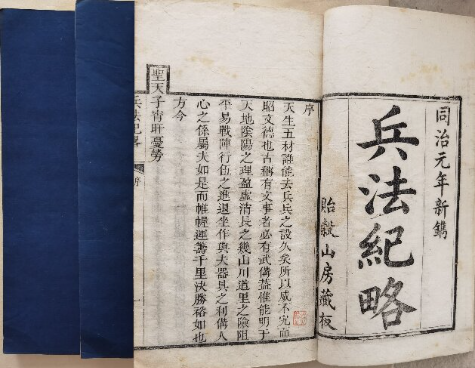 同治元年新鐫
兵法紀略
貽穀山房藏板
序
天生五材誰能去兵兵之設久矣所以威不軌而
昭文德也古稱有文事者必有武備蓋惟能明于
天地陰陽之理盈虛消長之幾山川道里之險阻
平易戰陣行伍之進退坐作與夫器具之利備人
心之係屬夫如是而帷幄運籌千里決勝裕如也
方今
聖天子宵旰憂勞
兵法紀畧 序